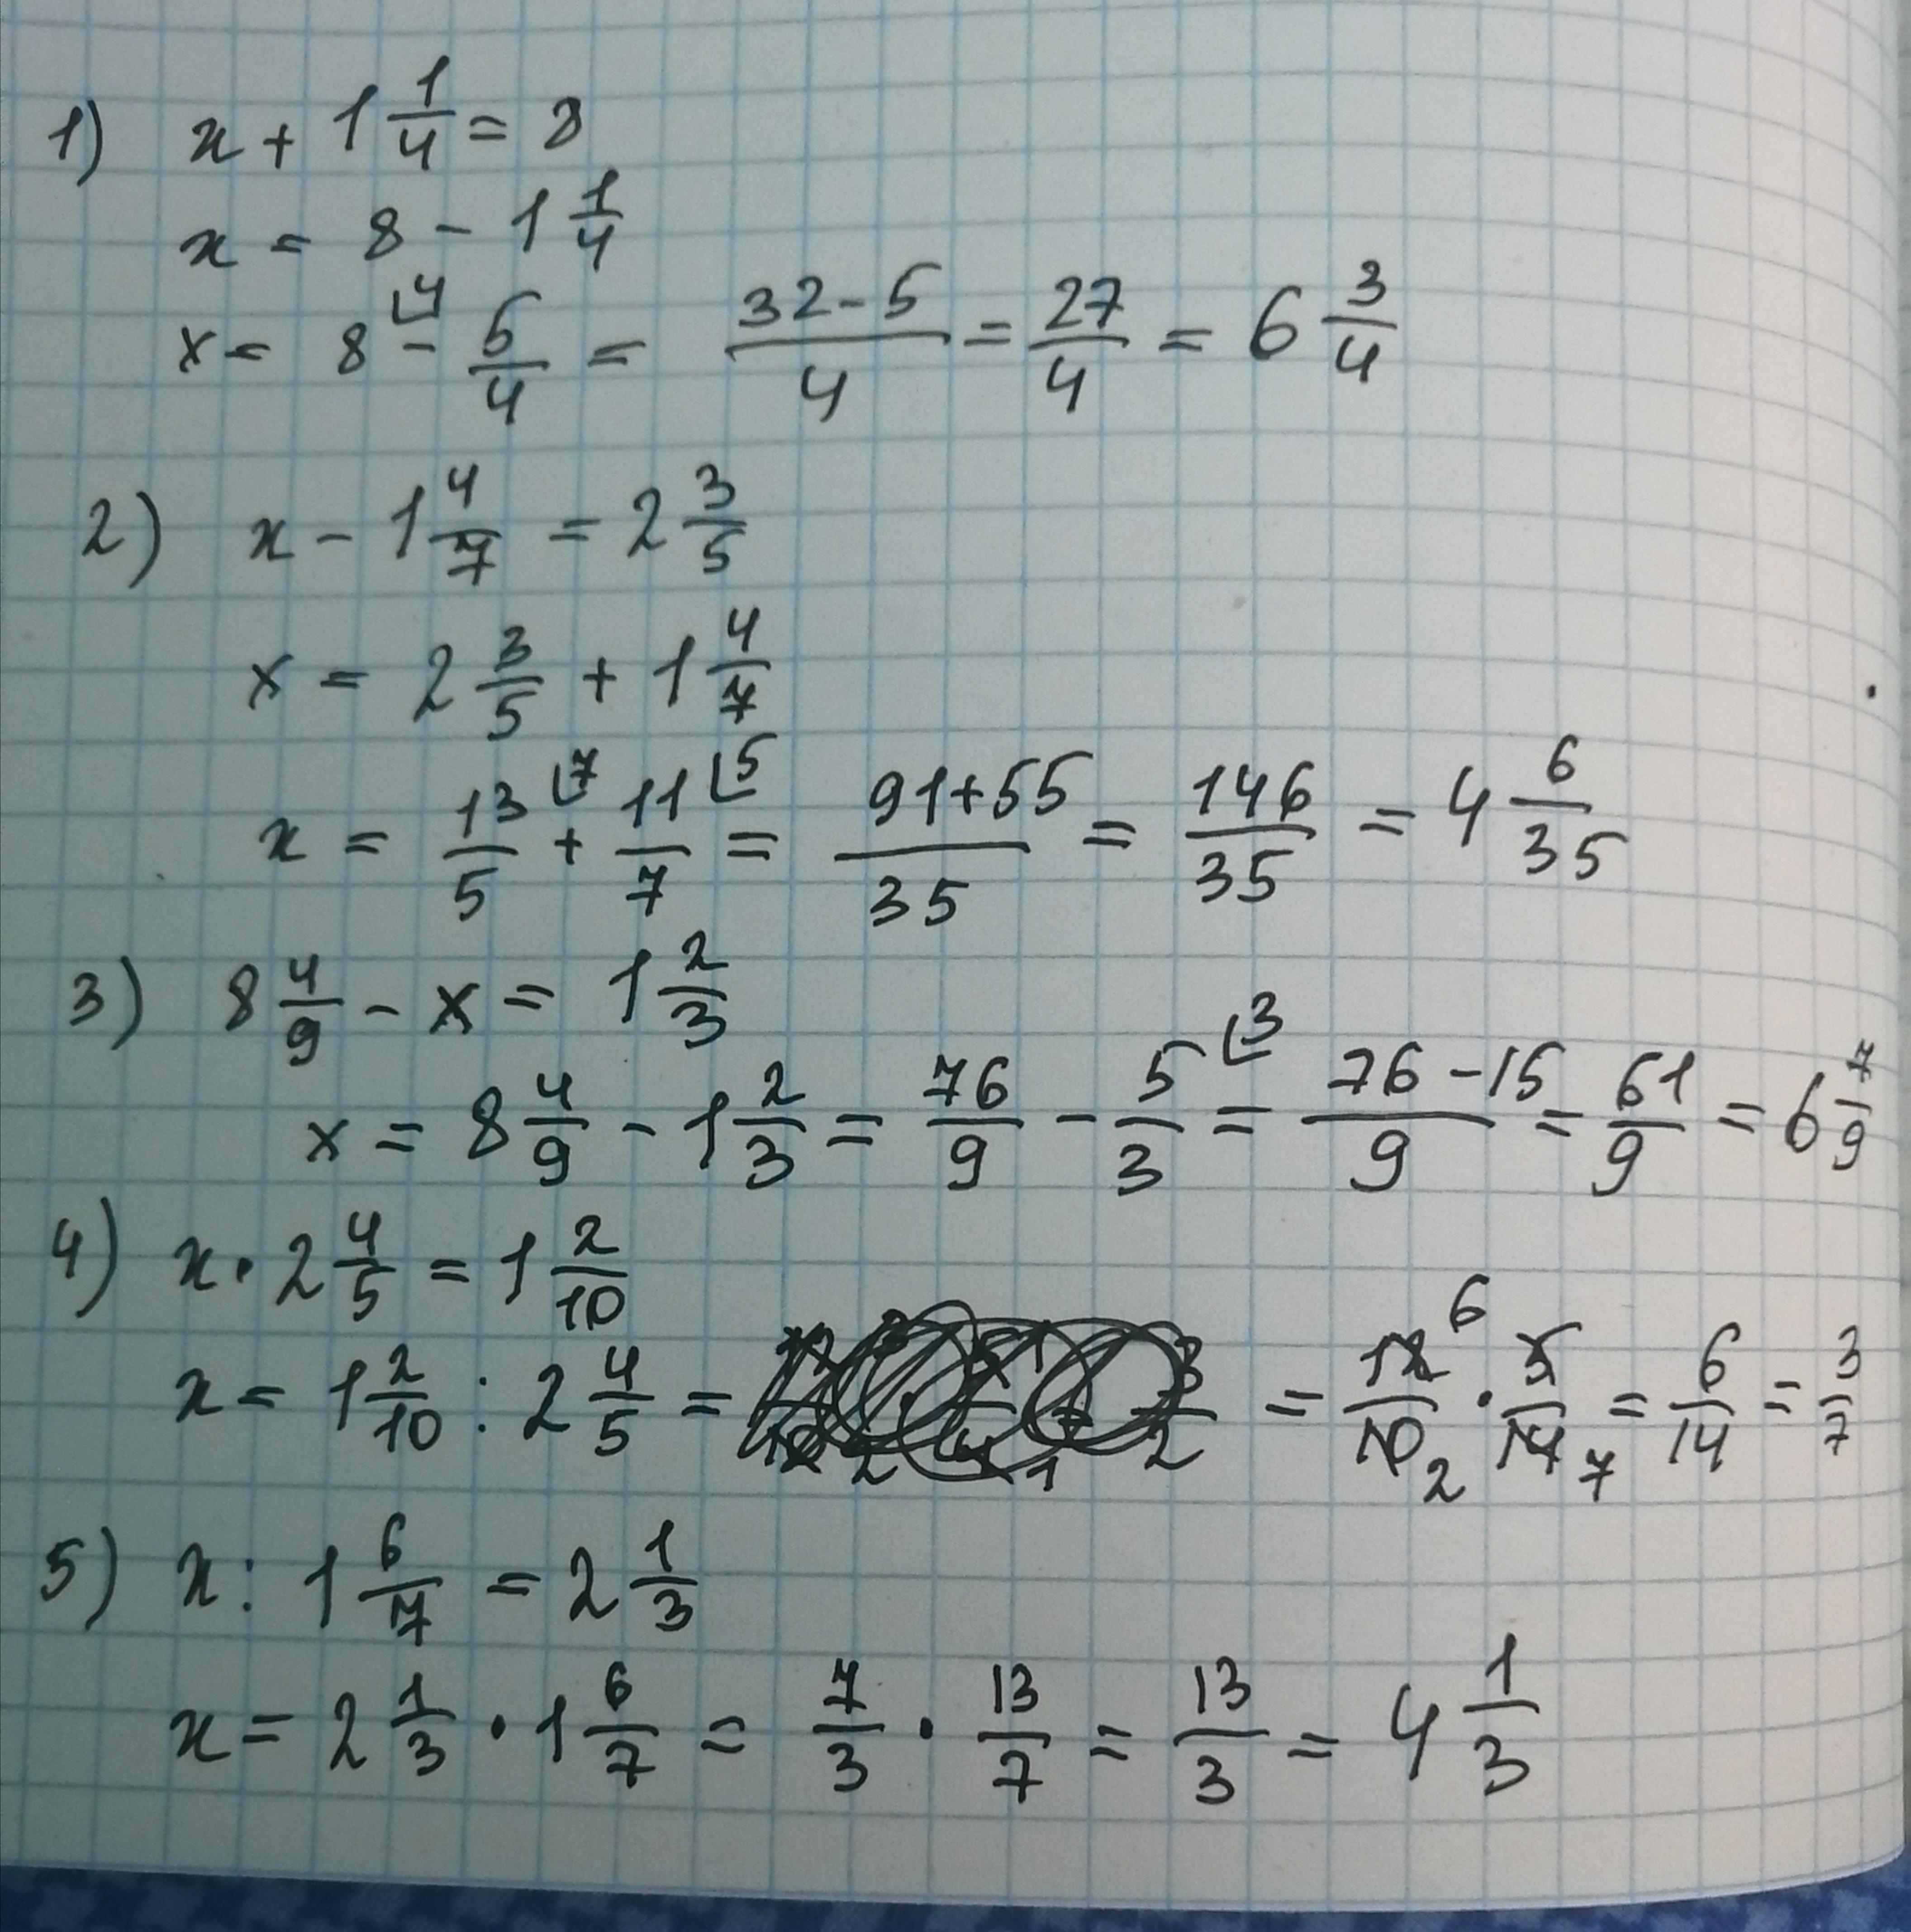 1) x + 1 1/4 = 8
x = 8 - 1 1/4
x = 8⌊4 - 5/4 = (32-5)/4 = 27/4 = 6 3/4
2) x - 1 4/7 = 2 3/5
x = 2 3/5 + 1 4/7
x = 13/5⌊7 + 11/7⌊5 = (91+55)/35 = 146/35 = 4 6/35
3) 8 4/9 - x = 1 2/3
x = 8 4/9 - 1 2/3 = 76/9 - 5/3⌊3 = (76-15)/9 = 61/9 = 6 7/9
4) x · 2 4/5 = 1 2/10
x = 1 2/10 : 2 4/5 = = 12 6/10 2 · 5/14 7 = 6/14 = 3/7
5) x : 1 6/7 = 2 1/3
x = 2 1/3 · 1 6/7 = 7/3 · 13/7 = 13/3 = 4 1/3